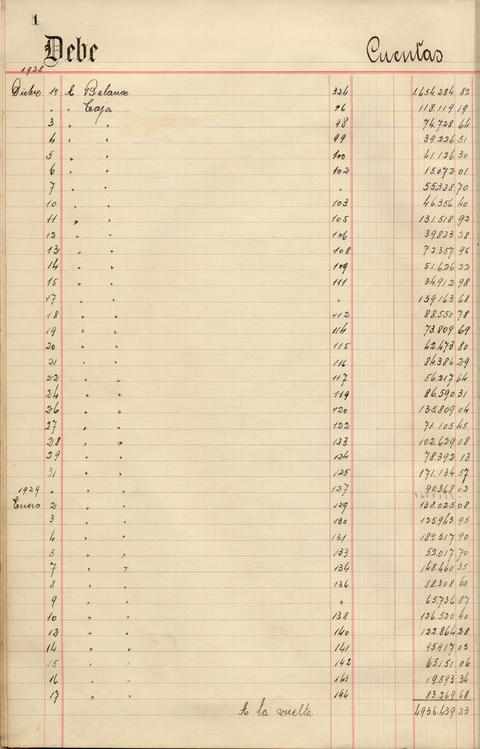 1
Debe Cuentas
1928
Dicbre 1º A Balance 324 1.654.284 82
" " " Caja 96 118.119 19
3 " " 98 74.728 64
4 " " 99 39.226 51
5 " " 100 41.126 30
6 " " 102 15.072 01
7 " " " 55.338 70
10 " " 103 46.356 40
11 " " 105 131.518 92
12 " " 106 39.823 28
13 " " 108 72.357 95
14 " " 109 51.626 22
15 " " 111 34.912 98
17 " " " 159.163 68
18 " " 112 88.550 78
19 " " 114 73.809 69
20 " " 115 42.473 80
21 " " 116 84.386 29
22 " " 117 56.217 64
24 " " 119 86.590 31
26 " " 120 135.809 04
27 " " 122 71.105 45
28 " " 123 102.629 08
29 " " 124 78.392 13
31 " " 125 171.134 57
1929 " " " 127 90.368 02
Enero 2 " " 129 138.025 08
3 " " 130 125.943 95
4 " " 131 189.517 90
5 " " 133 52.017 70
7 " " 134 148.460 35
8 " " 136 88.308 60
9 " " " 65.736 87
10 " " 138 126.520 40
13 " " 140 122.864 28
14 " " 141 95.917 02
15 " " 142 65.151 06
16 " " 143 19.593 34
17 " " 144 83.269 68
A la vuelta 4936.439 23